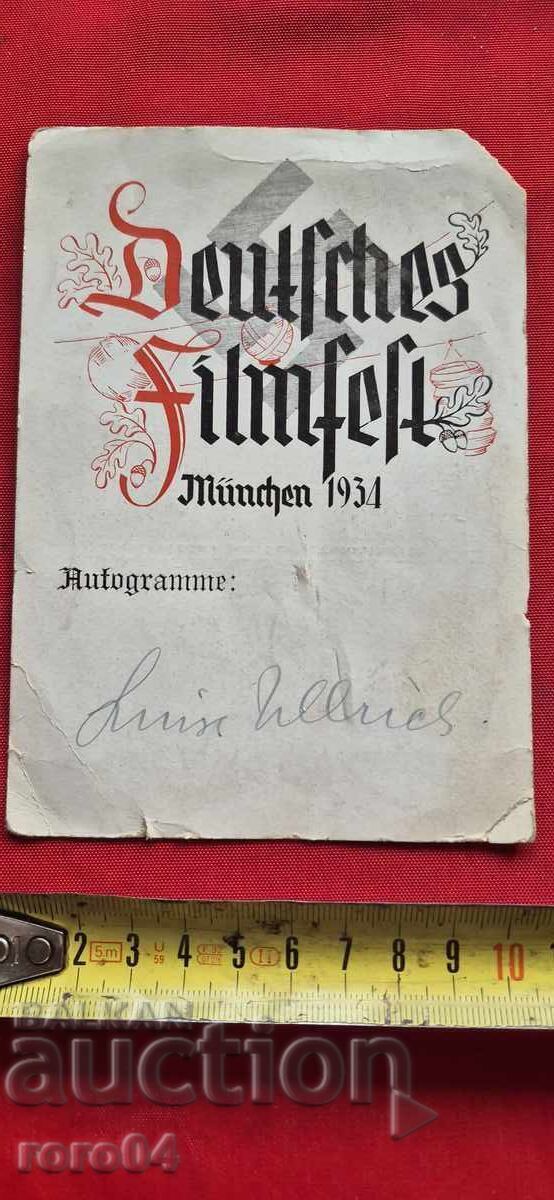 Deutsches
Filmfest
München 1934
Autogramme:
Luise Ullrich
2 5m 3 4 5 6 7 8 9 10
BALKAN
auction
roro04